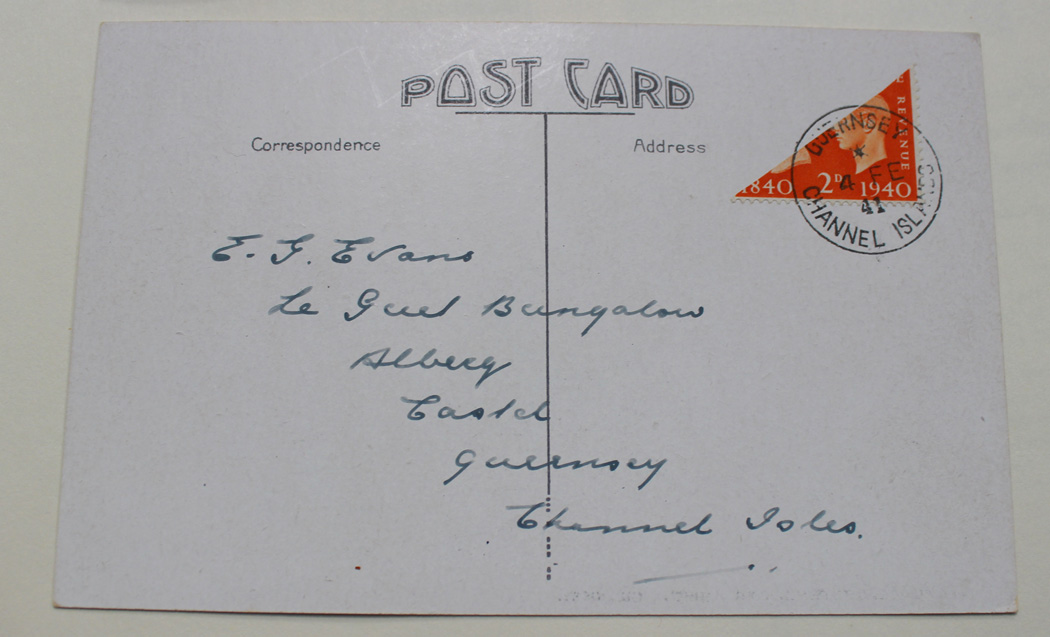 POST CARD
Correspondence
Address
REVENUE
1840 2D 1940
GUERNSEY
4 FE
41
CHANNEL ISLANDS
E. G. Evans
Le Guet Bungalow
Albecq
Castel
Guernsey
Channel Isles.